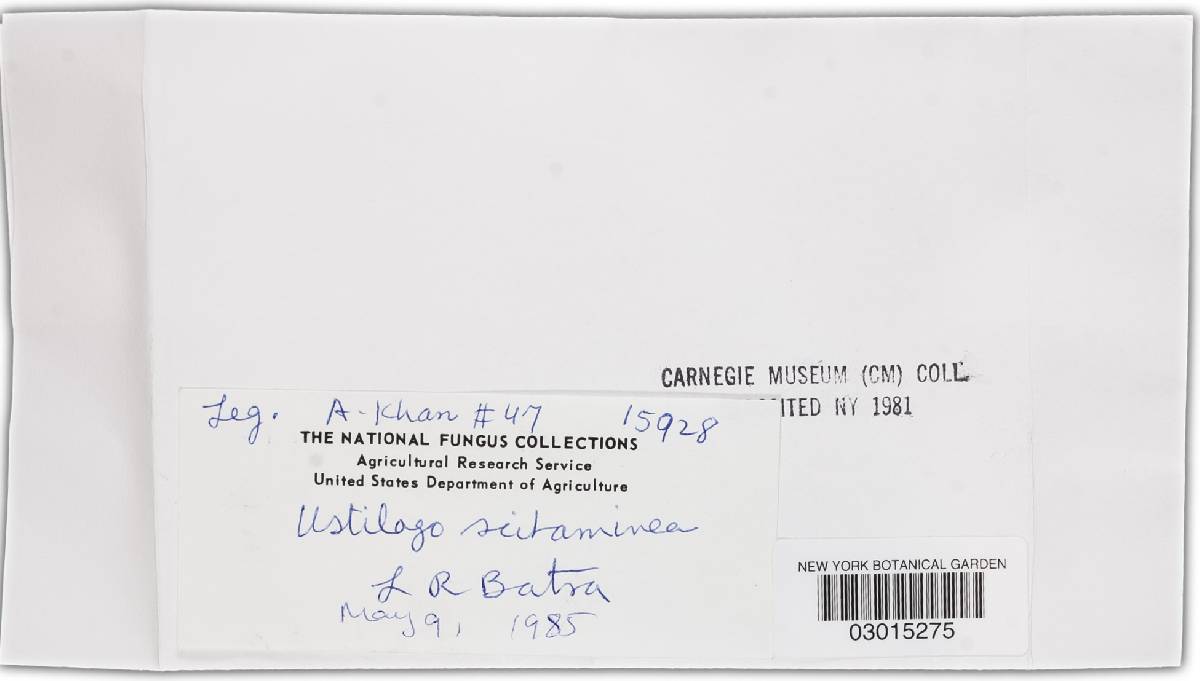 CARNEGIE MUSEUM (CM) COLL.
ITED NY 1981
Leg. A. Khan #47 15928
THE NATIONAL FUNGUS COLLECTIONS
Agricultural Research Service
United States Department of Agriculture
Ustilago scitaminea
L R Batra
May 9, 1985
NEW YORK BOTANICAL GARDEN
03015275